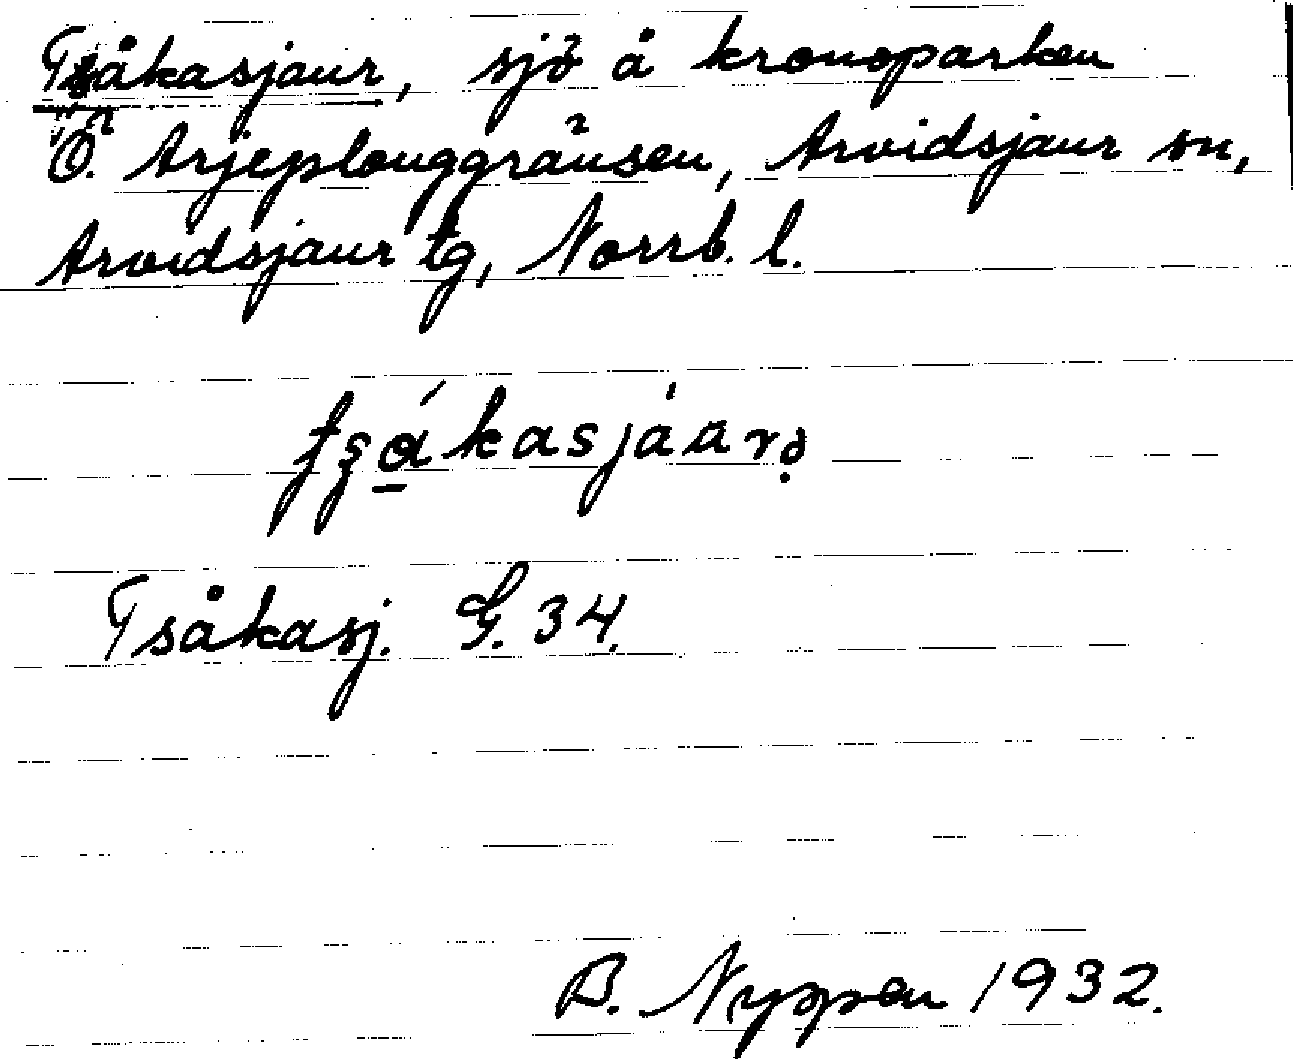 Tsåkasjaur, sjö å kronoparken
Ö. Arjeplouggränsen, Arvidsjaur sn,
Arvidsjaur tg, Norrb. l.
tsá̱kasjáarə̣
Tsåkasj. G. 34.
B. Nyppen 1932.